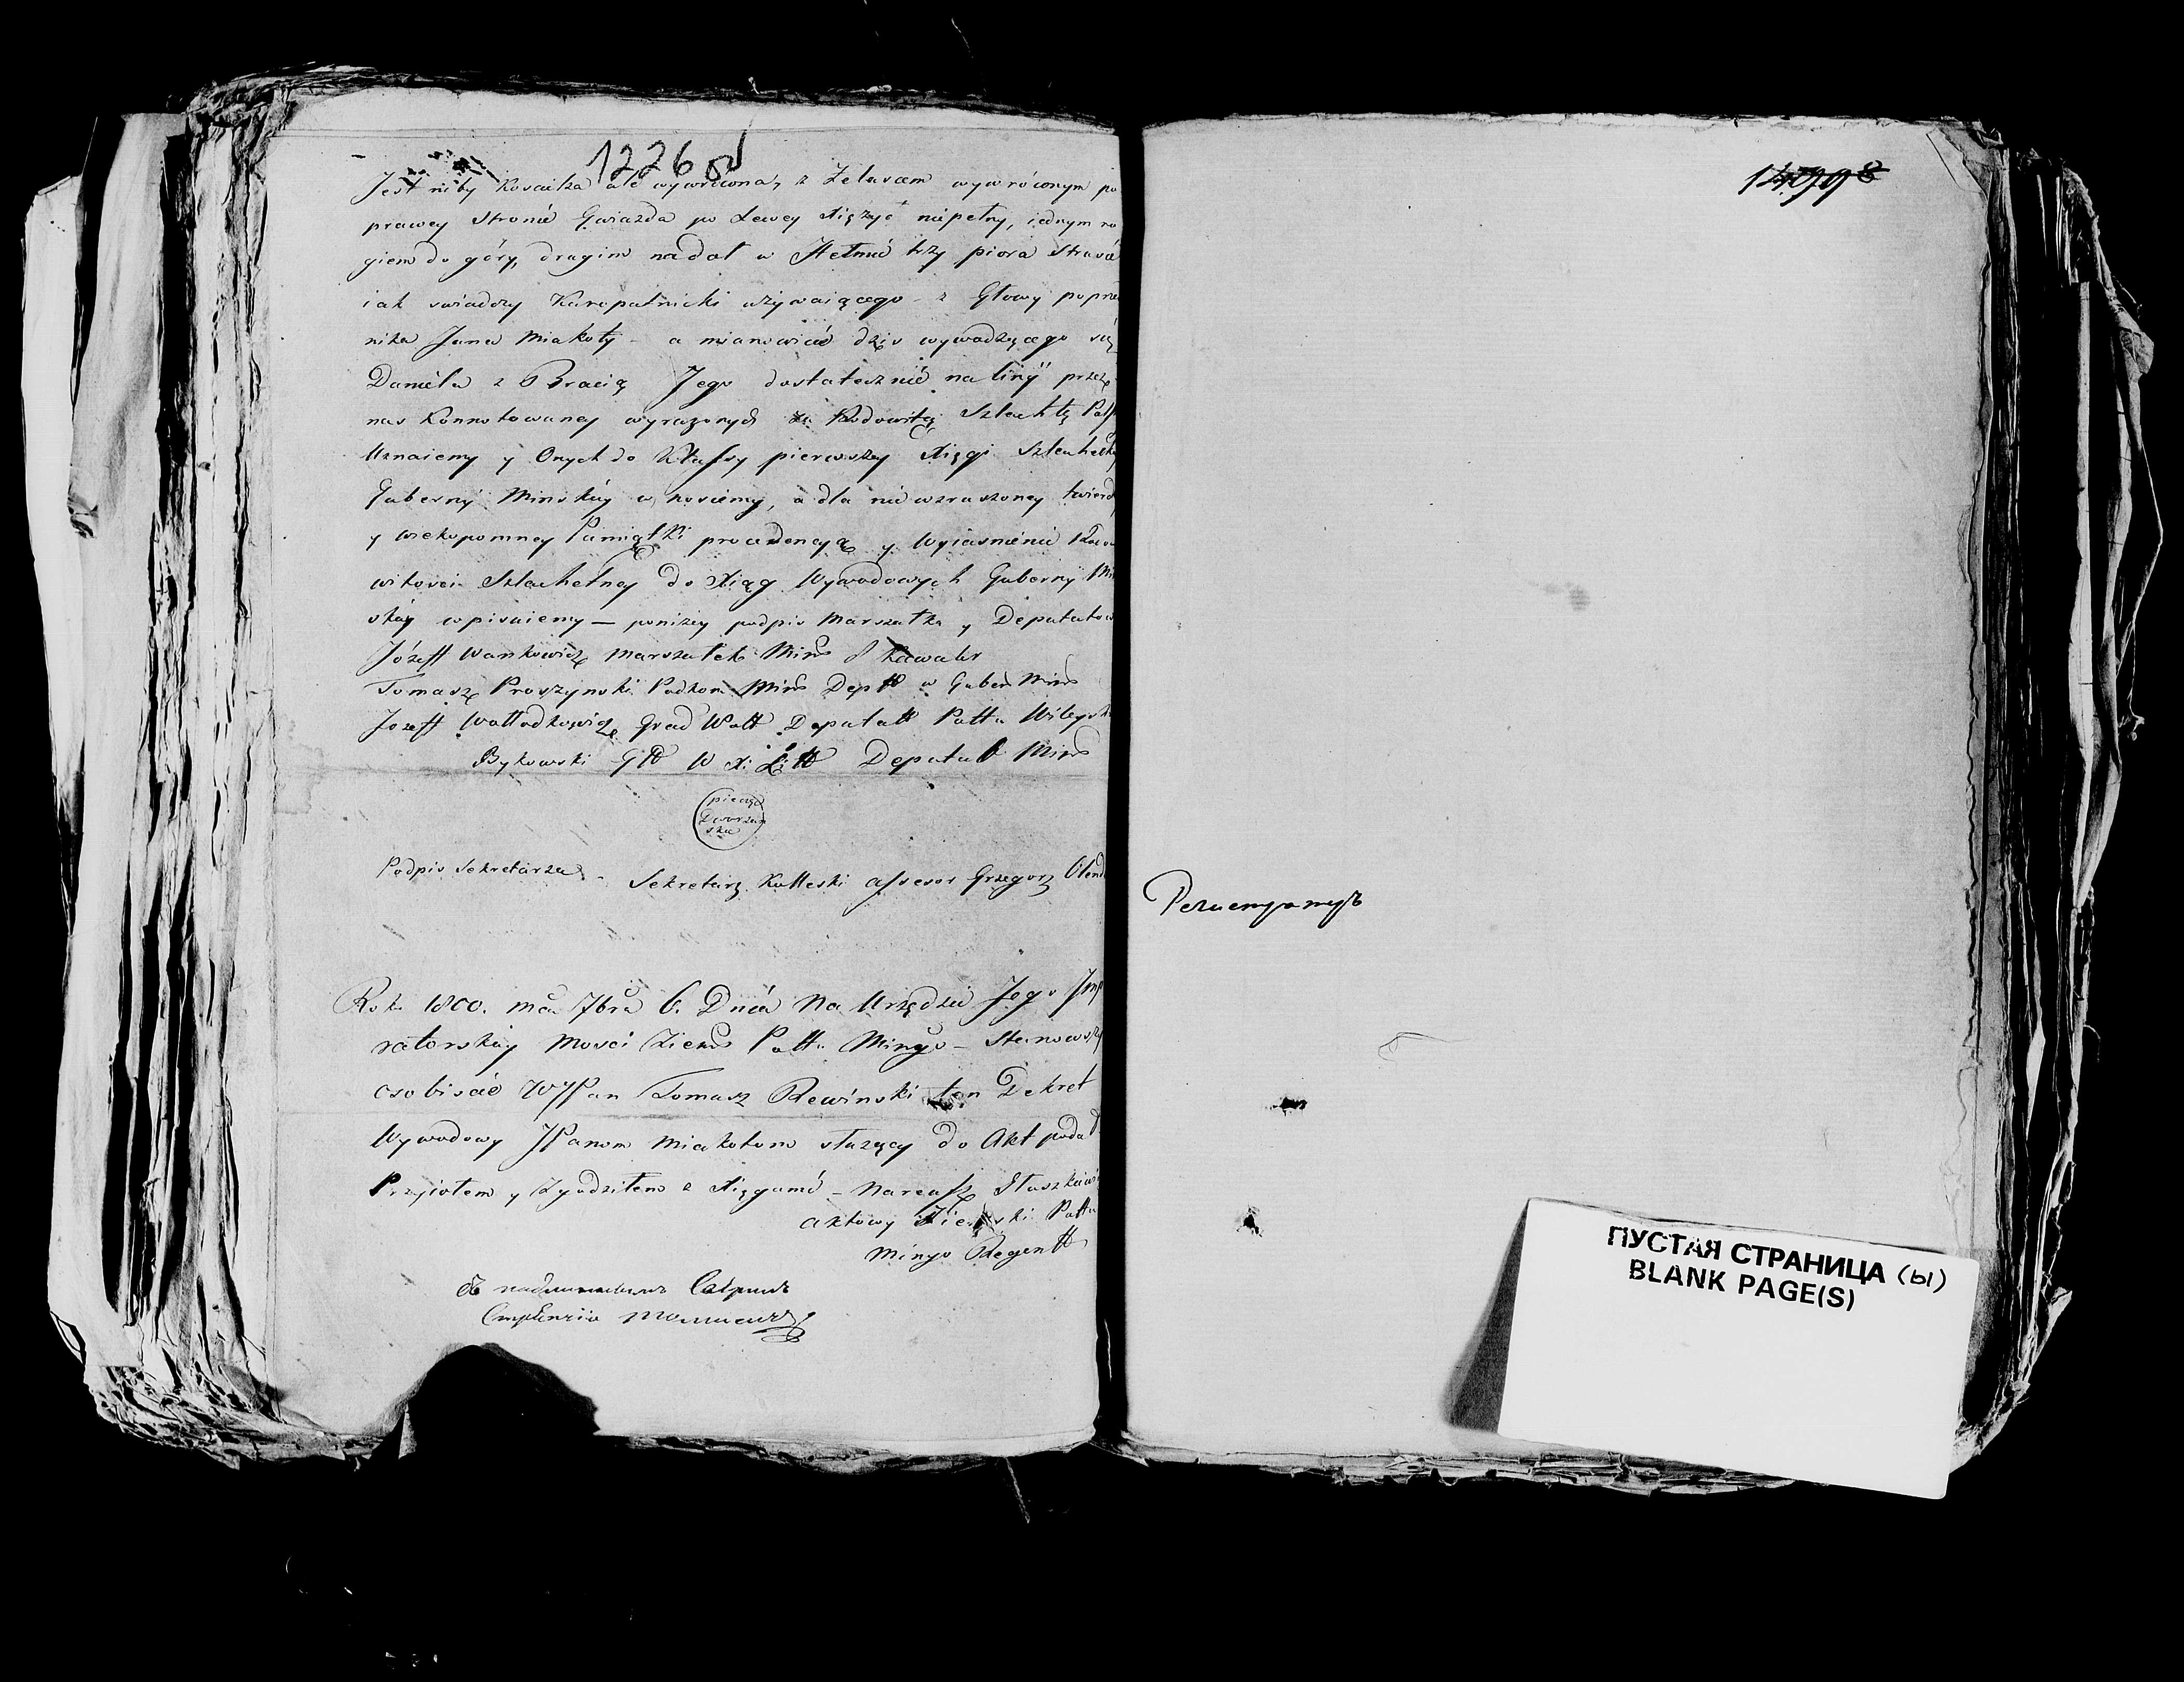 1226 об
Jest niby Kosciesza ale wywrócona, z Zelascem wywróconym po
prawey stronie Gwiazda po Lewey Xiężyc niepełny, iednym ro
giem do góry, drugim nadoł w Hełmie trzy piora Strusie
iak swiadczy Kuropatnicki używaiącego - z Głowy poprze
nika Jana Miakoty - a mianowicie dziś wywodzącego się
Daniela z Bracią Jego dostatecznie na liny przez
nas Konnotowaney wyrazonych za Rodowitą Szlachtę Pols
Uznaiemy y Onych do Klassy pierwszey Xięgi Szlachecki
Guberny Minskiey wnosiemy, a dla niewzruszoney twierd
y wiekopomney Pamiątki procedencyą y Wyiasnienie Rodo
witosci Szlachetney do Xiąg Wywodowych Guberny Min
skiey wpisuiemy — poniżey podpis Marszałka y Deputatow
Józeff Wankowicz Marszałek Mins & Kawaler
Tomasz Proszynski Podkom Mins Deptt w Guber Mins
Jozeff Wołłodkowicz Grad Wott Deputatt Pottu Wileysk
Bykowski Gtt W X: Litt Deputatt Mins
pieczęć
Dworzan
ska
Podpis Sekretarza - Sekretarz Kolleski assesor Grzegorz Olend
Roku 1800. mca 7bra 6. Dnia Na Urzędzie Jego Impe
ratorskiey Mosci Ziems Pottu Mingo - Stanowszy
osobiscie WJPan Tomasz Rewinski ten Dekret
Wywodowy JPanom Miakotom służący do Akt podał
Przyiołem y Zgodziłem z Xięgami - Narcyss Staszkiewi
aktowy Ziemski Pottu
Mingo Regentt
Съ подлиннымъ вѣрилъ
14998
Регистраторъ
ПУСТАЯ СТРАНИЦА (Ы)
BLANK PAGE(S)